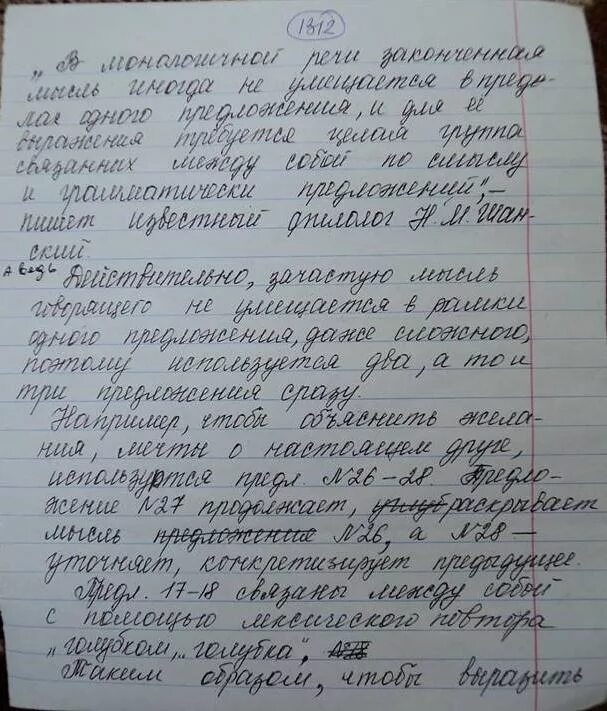 1312
„В монологичной речи законченная
мысль иногда не умещается в преде-
лах одного предложения, и для её
выражения требуется целая группа
связанных между собой по смыслу
и грамматически предложений", —
пишет известный филолог Н.М.Шан-
ский.
А ведь Действительно, зачастую мысль
говорящего не умещается в рамки
одного предложения, даже сложного,
поэтому используется два, а то и
три предложения сразу.
Например, чтобы объяснить жела-
ния, мечты о настоящем друге,
используются предл. №26-28. Предло-
жение №27 продолжает, углуб раскрывает
мысль предложения №26, а №28 —
уточняет, конкретизирует предыдущее.
Предл. 17-18 связаны между собой
с помощью лексического повтора
„голубком", „голубка".
Таким образом, чтобы выразить